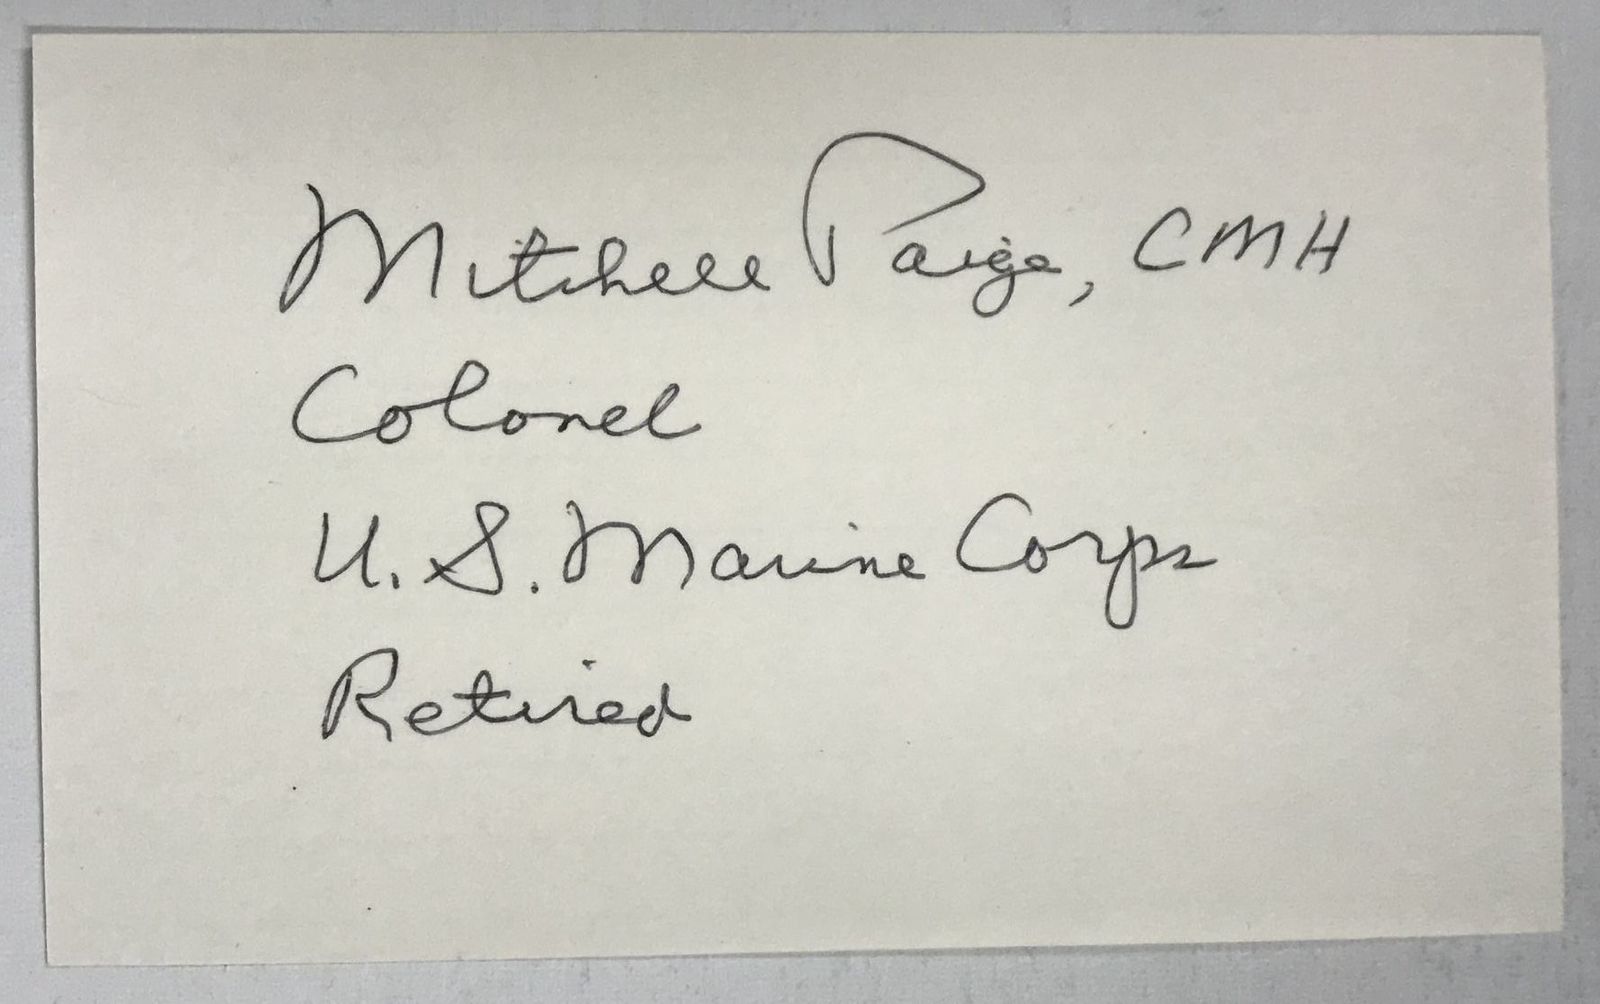 Mitchell Paige, CMH
Colonel
U.S. Marine Corps
Retired